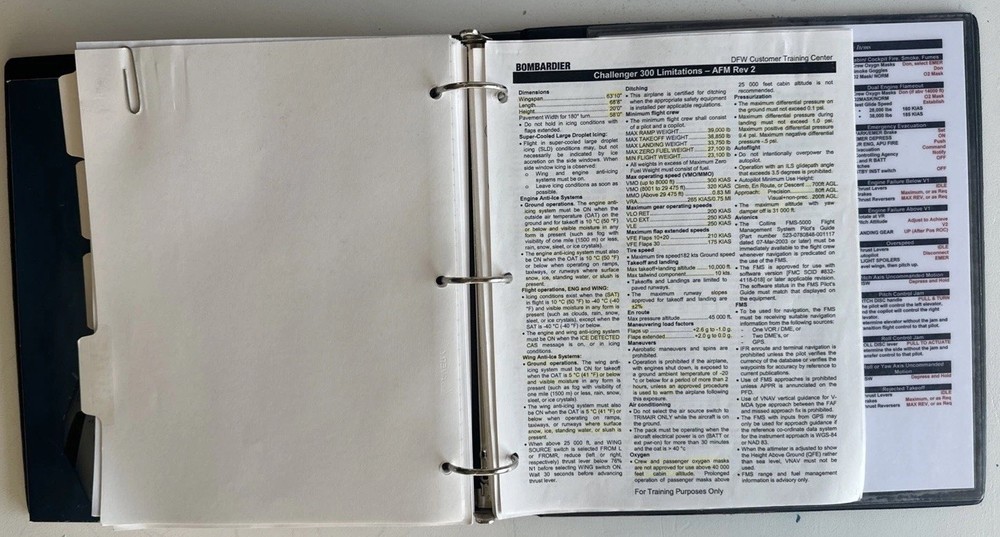 BOMBARDIER
DFW Customer Training Center
Challenger 300 Limitations – AFM Rev 2
Dimensions
Wingspan 63'10"
Length 68'8"
Height 20'0"
Pavement Width for 180° turn 58'0"
• Do not hold in icing conditions with
flaps extended.
Super-Cooled Large Droplet Icing:
• Flight in super-cooled large droplet
icing (SLD) conditions may, but not
necessarily be indicated by ice
accretion on the side windows. When
side window icing is observed:
o Wing and engine anti-ice
systems must be on.
o Leave icing conditions as soon as
possible.
Engine Anti-Ice Systems
• Ground operations. The engine anti-
icing system must be ON when the
outside air temperature (OAT) on the
ground and for takeoff is 10 °C (50 °F)
or below and visible moisture in any
form is present (such as fog with
visibility of one mile (1500 m) or less,
rain, snow, sleet, or ice crystals).
• The engine anti-icing system must also
be ON when the OAT is 10 °C (50 °F)
or below when operating on ramps,
taxiways, or runways where surface
snow, ice, standing water, or slush is
present.
Flight operations, ENG and WING:
• Icing conditions exist when the (SAT)
in flight is 10 °C (50 °F) to -40 °C (-40
°F) and visible moisture in any form is
present (such as clouds, rain, snow,
sleet, or ice crystals), except when the
SAT is -40 °C (-40 °F) or below.
• The engine and wing anti-icing system
must be ON when the ICE DETECTED
CAS message is on, or in icing
conditions.
Wing Anti-Ice Systems:
• Ground operations. The wing anti-
icing system must be ON for takeoff
when the OAT is 5 °C (41 °F) or below
and visible moisture in any form is
present (such as fog with visibility of
one mile (1500 m) or less, rain, snow,
sleet, or ice crystals).
• The wing anti-icing system must also
be ON when the OAT is 5 °C (41 °F) or
below when operating on ramps,
taxiways, or runways where surface
snow, ice, standing water, or slush is
present.
• When above 25 000 ft, and WING
SOURCE switch is selected FROM L
or FROMR, reduce (left or right,
respectively) thrust lever below 76%
N1 before selecting WING switch ON.
Wait 30 seconds before advancing
thrust lever.
Ditching
• This airplane is certified for ditching
when the appropriate safety equipment
is installed per applicable regulations.
Minimum flight crew
• The minimum flight crew shall consist
of a pilot and a copilot.
MAX RAMP WEIGHT 39,000 lb
MAX TAKEOFF WEIGHT 38,850 lb
MAX LANDING WEIGHT 33,750 lb
MAX ZERO FUEL WEIGHT 27,100 lb
MIN FLIGHT WEIGHT 23,100 lb
• All weights in excess of Maximum Zero
Fuel Weight must consist of fuel.
Max operating speed (VMO/MMO)
VMO (up to 8000 ft) 300 KIAS
VMO (8001 to 29 475 ft) 320 KIAS
MMO (Above 29 475 ft) 0.83 MI
VRA 265 KIAS/0.75 MI
Maximum gear operating speeds
VLO RET 200 KIAS
VLO EXT 250 KIAS
VLE 250 KIAS
Maximum flap extended speeds
VFE Flaps 10+20 210 KIAS
VFE Flaps 30 175 KIAS
Tire speed
• Maximum tire speed182 kts Ground speed
Takeoff and landing
Max takeoff+landing altitude 10,000 ft.
Max tailwind component 10 kts.
• Takeoffs and Landings are limited to
paved runways.
• The maximum runway slopes
approved for takeoff and landing are
±2%
En route
Max pressure altitude 45 000 ft.
Maneuvering load factors
Flaps up +2.6 g to -1.0 g.
Flaps extended +2.0 g to 0.0 g.
Maneuvers
• Aerobatic maneuvers and spins are
prohibited.
• Operation is prohibited if the airplane,
with engines shut down, is exposed to
a ground ambient temperature of -20
°c or below for a period of more than 2
hours, unless an approved procedure
is used to warm the airplane following
this exposure.
Air conditioning
• Do not select the air source switch to
TRIMAIR ONLY while the aircraft is on
the ground.
• The pack must be operating when the
aircraft electrical power is on (BATT or
ext pwr-on) for more than 30 minutes
and the oat is > 40 °c
Oxygen
• Crew and passenger oxygen masks
are not approved for use above 40 000
feet cabin altitude. Prolonged
operation of passenger masks above
25 000 feet cabin altitude is not
recommended.
Pressurization
• The maximum differential pressure on
the ground must not exceed 0.1 psi.
• Maximum differential pressure during
landing must not exceed 1.0 psi.
Maximum positive differential pressure
9.4 psi. Maximum negative differential
pressure -.5 psi.
Autoflight
• Do not intentionally overpower the
autopilot.
• Operation with an ILS glidepath angle
that exceeds 3.5 degrees is prohibited.
• Autopilot Minimum Use Height:
Climb, En Route, or Descent 700ft AGL.
Approach: Precision 80ft AGL.
Visual+non-prec. 200ft AGL.
• The maximum altitude with yaw
damper off is 31 000 ft.
Avionics
• The Collins FMS-5000 Flight
Management System Pilot's Guide
(Part number 523-0780848-001117
dated 07-Mar-2003 or later) must be
immediately available to the flight crew
whenever navigation is predicated on
the use of the FMS.
• The FMS is approved for use with
software version [FMC SCID #832-
4118-018] or later applicable revision.
The software status in the FMS Pilot's
Guide must match that displayed on
the equipment.
FMS
• To be used for navigation, the FMS
must be receiving suitable navigation
information from the following sources:
- One VOR / DME, or
- Two DME's, or
- GPS.
• IFR enroute and terminal navigation is
prohibited unless the pilot verifies the
currency of the database or verifies the
waypoints for accuracy by reference to
current publications.
• Use of FMS approaches is prohibited
unless APPR is annunciated on the
PFD.
• Use of VNAV vertical guidance for V-
MDA type approach between the FAF
and missed approach fix is prohibited.
• The FMS with inputs from GPS may
only be used for approach guidance if
the reference co-ordinate data system
for the instrument approach is WGS-84
or NAD 83.
• When the altimeter is adjusted to show
the Height Above Ground (QFE) rather
than sea level, VNAV must not be
used.
• FMS range and fuel management
information is advisory only.
For Training Purposes Only
Items
Cockpit Fire, Smoke, Fumes
Crew Oxygen Masks Don, select EMER
Smoke Goggles Don
Mask/ NORM O2 Mask
Dual Engine Flameout
Oxygen Masks Don (if abv 14000 ft)
MASK/NORM O2 Mask
Glide Speed Establish
Emergency Evacuation
PARK/EMER Brake Set
EMER DEPRESS ON
ENG, APU FIRE Push
Evacuation Command
Controlling Agency Notify
BATT OFF
INST switch OFF
Engine Failure Below V1
Thrust Levers IDLE
Brakes Maximum, or as Req
Thrust Reversers MAX REV, or as Req
Engine Failure Above V1
Pitch Attitude Adjust to Achieve
V2
LANDING GEAR UP (After Pos ROC)
Overspeed
Thrust Levers IDLE
Autopilot Disconnect
FLIGHT SPOILERS EMER
Level wings, then pitch up.
Pitch Axis Uncommanded Motion
Depress and Hold
Pitch Control Jam
PITCH DISC handle PULL & TURN
the pilot will control the left elevator,
and the copilot will control the right
elevator.
Determine elevator without the jam and
transition flight control to that pilot.
Roll Control Jam
ROLL DISC lever PULL TO ACTUATE
Determine the side without the jam and
transfer control to that pilot.
Roll or Yaw Axis Uncommanded
Motion
Depress and Hold
Rejected Takeoff
Thrust Levers IDLE
Brakes Maximum, or as Req
Thrust Reversers MAX REV, or as Req